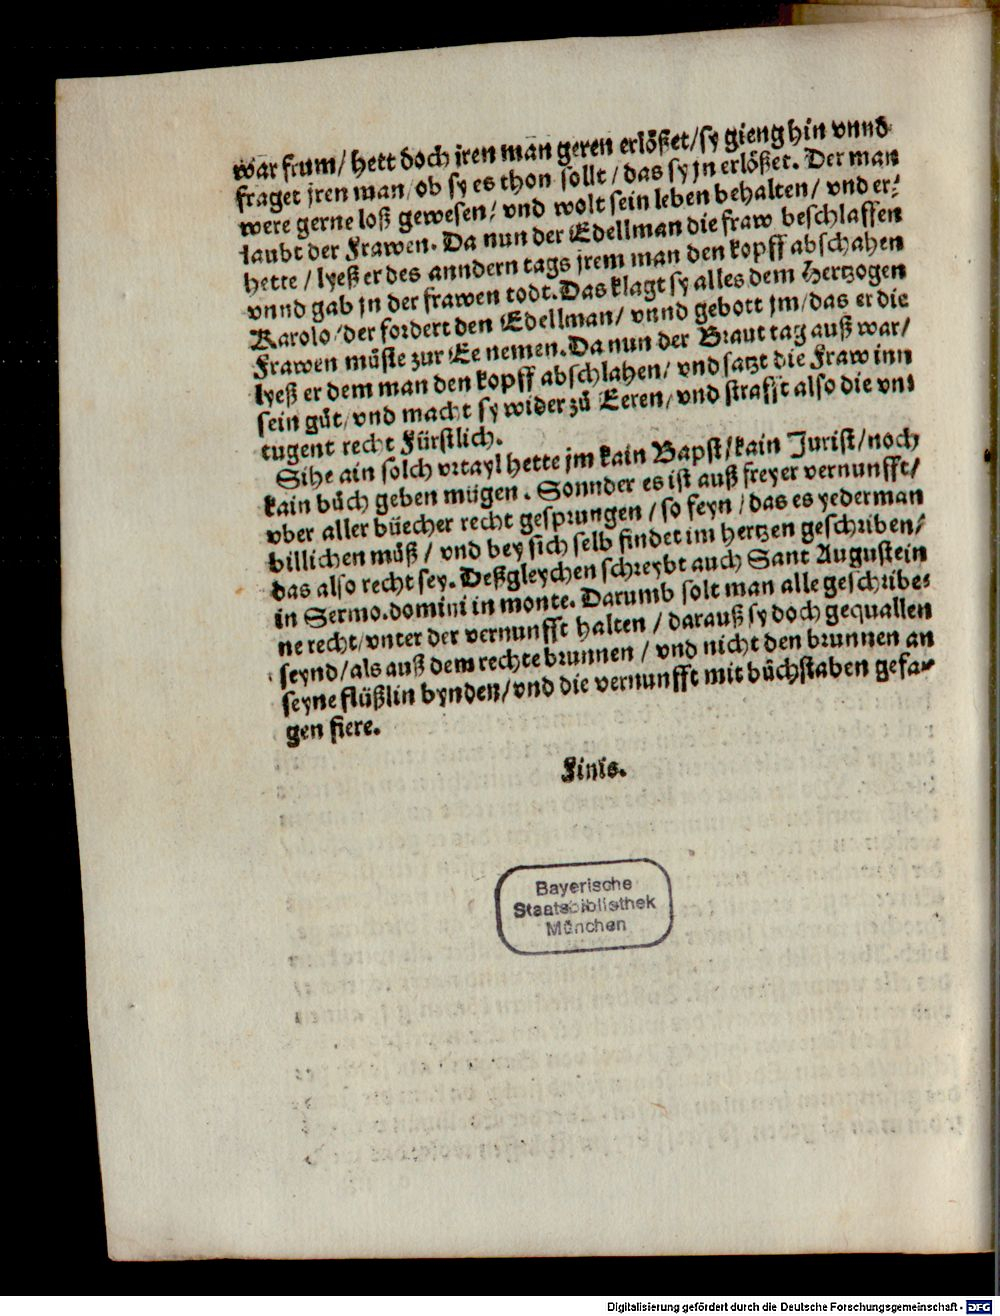 war frum/ hett doch jren man geren erlößet/ sy gieng hin vnnd
fraget jren man/ ob sy es thon sollt/ das sy jn erlößet. Der man
were gerne loß gewesen/ vnd wolt sein leben behalten/ vnd er⸗
laubt der Frawen. Da nun der Edellman die fraw beschlaffen
hette/ lyeß er des anndern tags jrem man den kopff abschahen
vnnd gab jn der frawen todt. Das klagt sy alles dem Hertzogen
Karolo/ der fordert den Edellman/ vnnd gebott jm/ das er die
Frawen müste zur Ee nemen. Da nun der Braut tag auß war/
lyeß er dem man den kopff abschlahen/ vnd satzt die Fraw inn
sein gůt/ vnd macht sy wider zů Eeren/ vnd strafft also die vn⸗
tugent recht Fürstlich.
Sihe ain solch vrtayl hette jm kain Bapst/ kain Jurist/ noch
kain bůch geben mügen. Sonnder es ist auß freyer vernunfft/
vber aller büecher recht gesprungen/ so feyn/ das es yederman
billichen můß/ vnd bey sich selb findet im hertzen geschriben/
das also recht sey. Deßgleychen schreybt auch Sant Augustein
in Sermo. domini in monte. Darumb solt man alle geschribe⸗
ne recht/ vnter der vernunfft halten/ darauß sy doch gequallen
seynd/ als auß dem rechte brunnen/ vnd nicht den brunnen an
seyne flüßlin bynden/ vnd die vernunfft mit bůchstaben gefa⸗
gen fiere.
Finis.
Bayerische
Staatsbibliothek
München
Digitalisierung gefördert durch die Deutsche Forschungsgemeinschaft - DFG